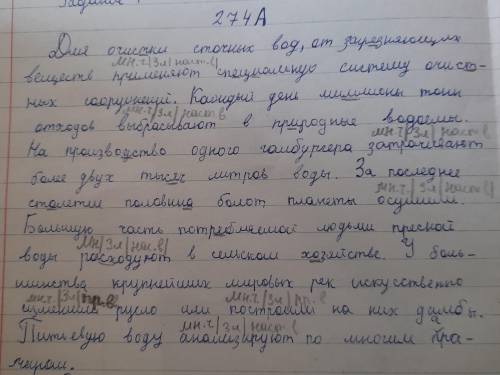 274А
Для очистки сточных вод, от загрязняющих
мн.ч|3л|наст.в|
веществ применяют специальную систему очист-
ных сооружений. Каждый день миллионы тонн
мн.ч|3л|наст.в
отходов выбрасывают в природные водоёмы.
мн.ч|3л|наст.в|
На производство одного гамбургера затрачивают
более двух тысяч литров воды. За последнее
мн.ч|3л|наст.в|
столетие половина болот планеты осушили.
Большую часть потребляемой людьми пресной
мн|3л|нас.в|
воды расходуют в сельском хозяйстве. У боль-
шинства крупнейших мировых рек искусственно
мн.ч|3л|пр.в мн.ч|3л|пр.в
русло или построили на них дамбы.
мн.ч|3л|наст.в|
Питьевую воду анализируют по многим